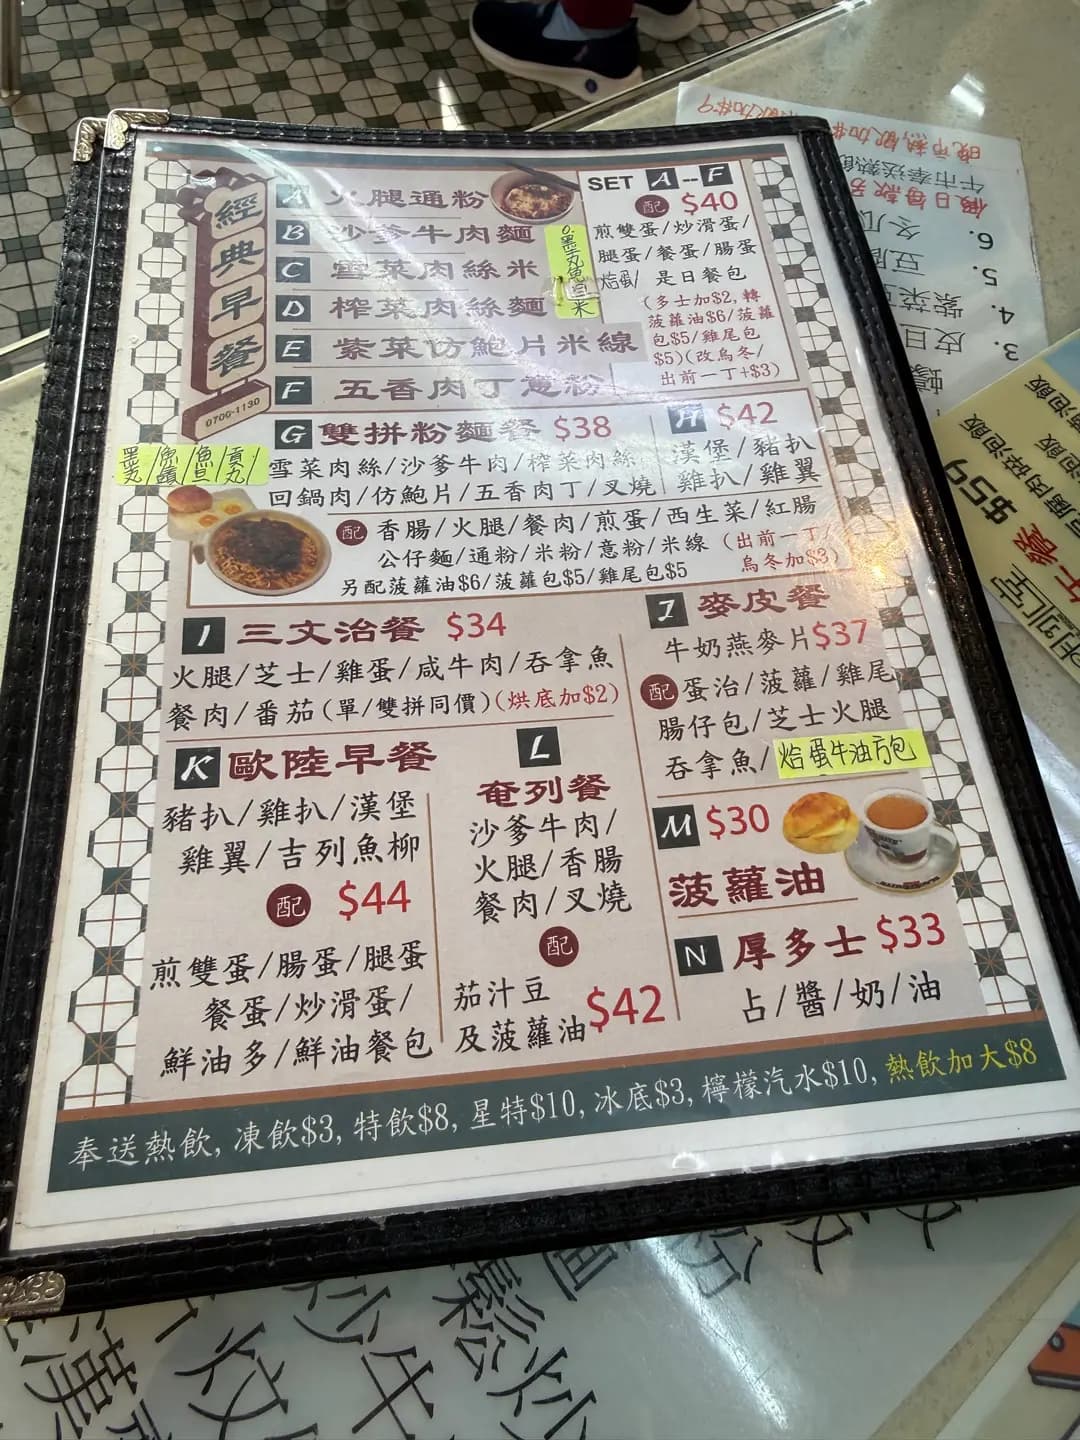 經典早餐
0700-1130
A 火腿通粉
B 沙爹牛肉麵
C 雪菜肉絲米
D 榨菜肉絲麵
E 紫菜仿鮑片米線
F 五香肉丁意粉
O.墨丸魚旦米
SET A--F
配 $40
煎雙蛋/炒滑蛋/
腿蛋/餐蛋/腸蛋
焓蛋/ 是日餐包
(多士加$2, 轉
菠蘿油$6/菠蘿
包$5/雞尾包
$5)(改烏冬/
出前一丁+$3)
G 雙拼粉麵餐 $38
墨丸/魚旦/貢丸/
雪菜肉絲/沙爹牛肉/榨菜肉絲
回鍋肉/仿鮑片/五香肉丁/叉燒
H $42
漢堡/豬扒
雞扒/雞翼
配 香腸/火腿/餐肉/煎蛋/西生菜/紅腸
公仔麵/通粉/米粉/意粉/米線 (出前一丁/
烏冬加$3)
另配菠蘿油$6/菠蘿包$5/雞尾包$5
I 三文治餐 $34
火腿/芝士/雞蛋/咸牛肉/吞拿魚
餐肉/番茄(單/雙拼同價)(烘底加$2)
J 麥皮餐
牛奶燕麥片$37
配 蛋治/菠蘿/雞尾
腸仔包/芝士火腿
吞拿魚/ 焓蛋牛油方包
K 歐陸早餐
豬扒/雞扒/漢堡
雞翼/吉列魚柳
配 $44
煎雙蛋/腸蛋/腿蛋
餐蛋/炒滑蛋/
鮮油多/鮮油餐包
L
奄列餐
沙爹牛肉/
火腿/香腸
餐肉/叉燒
配
茄汁豆
及菠蘿油$42
M $30
菠蘿油
N 厚多士 $33
占/醬/奶/油
奉送熱飲, 凍飲$3, 特飲$8, 星特$10, 冰底$3, 檸檬汽水$10, 熱飲加大$8
晚市熱飲加#9
午市奉送熱飲
假日每款
6.
5.
4.
3.
午餐